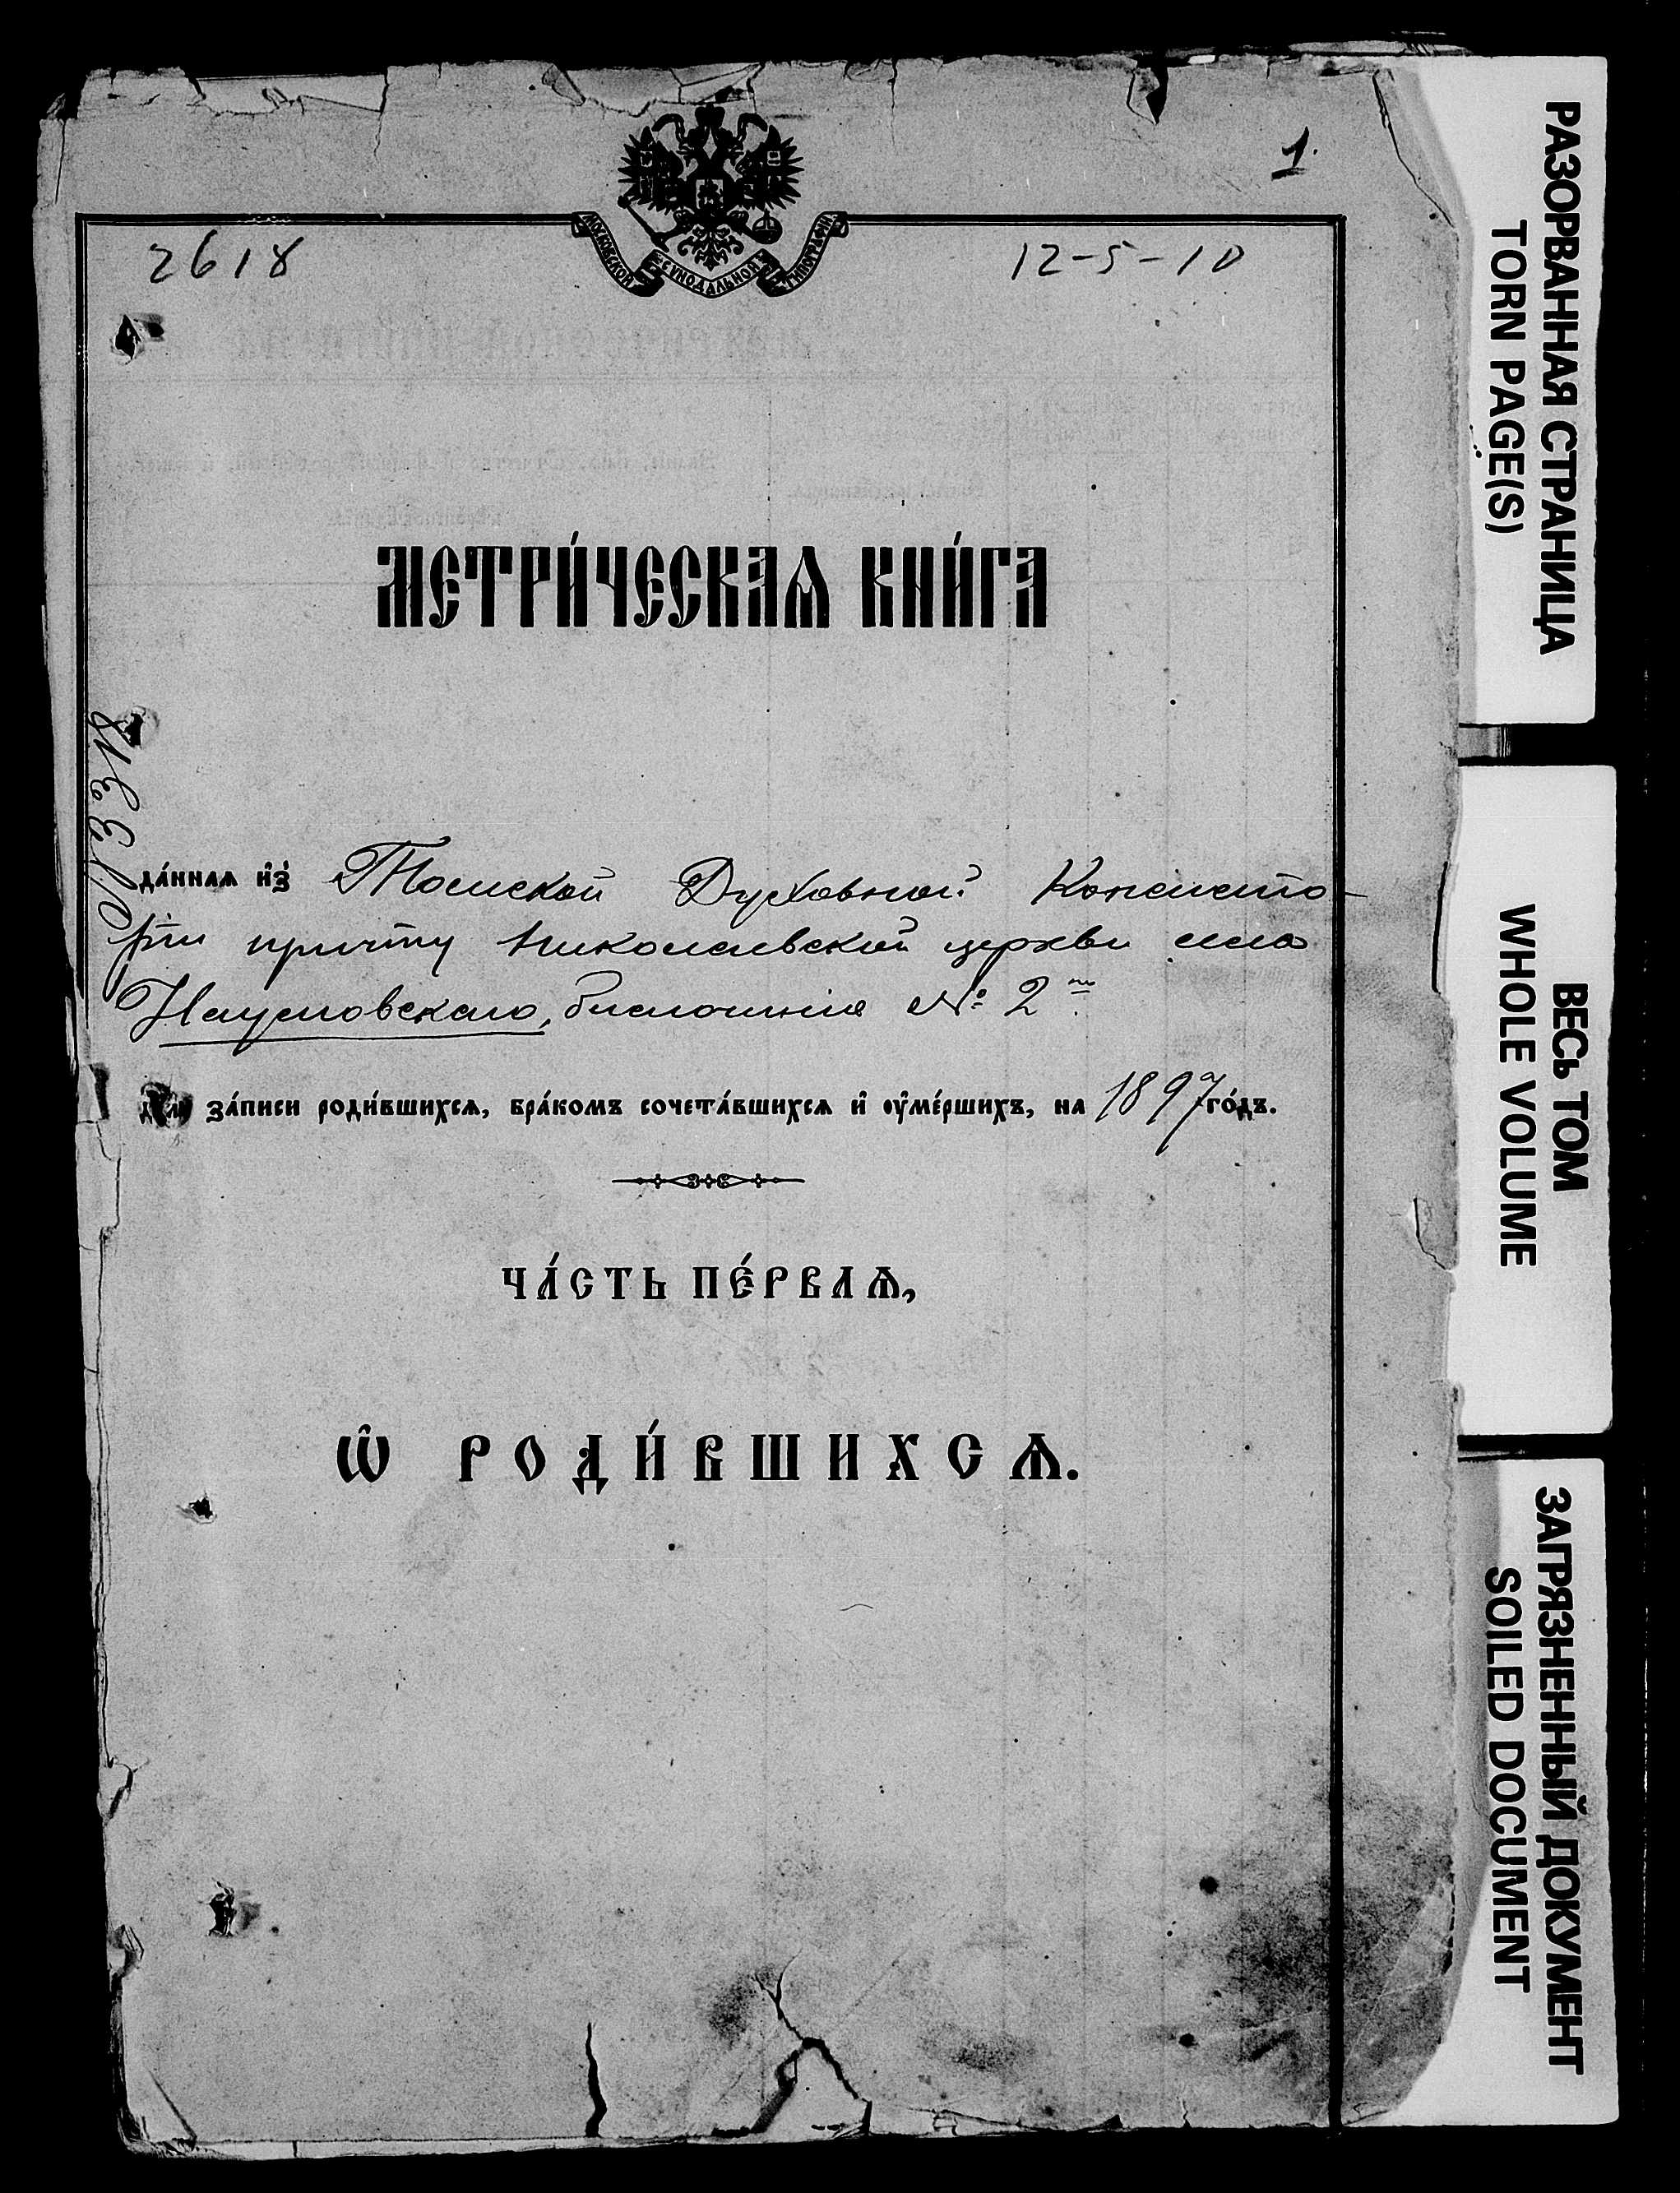 1.
МОСКОВСКОЙ СѴНОДАЛЬНОЙ ТИПОГРАФІИ
2618
12-5-10
МЕТРИ́ЧЕСКАѦ КНИ́ГА
да́ннаѧ и҆з̾ Томской Духовной Консисто-
ріи причту Николаевской церкви села
Наумовскаго, благочинія № 2го
для за́писи роди́вшихсѧ, бра́комъ сочета́вшихсѧ и҆ оу҆ме́ршихъ, на 1897 го́дъ.
ЧА́СТЬ ПЕ́РВАѦ,
Ѡ҆ РОДИ́ВШИХСѦ.
РАЗОРВАННАЯ СТРАНИЦА
TORN PAGE(S)
ВЕСЬ ТОМ
WHOLE VOLUME
ЗАГРЯЗНЕННЫЙ ДОКУМЕНТ
SOILED DOCUMENT